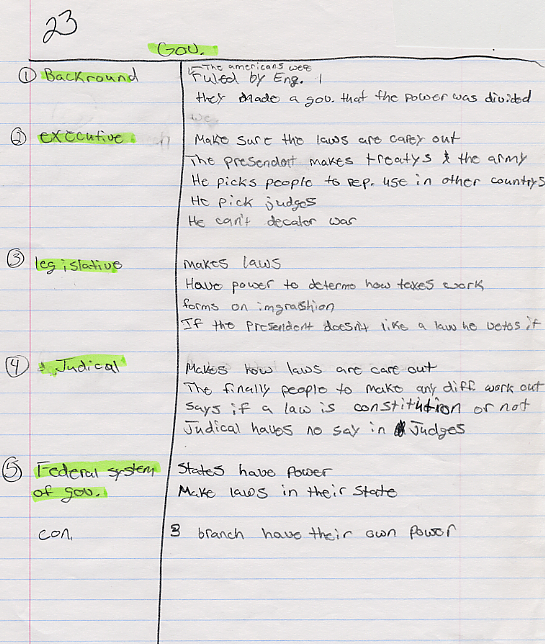 23
Gov.
① Backround
The americans were
ruled by Eng.
they made a gov. that the power was divided
② executive
Make sure the laws are carey out
The presendant makes treatys & the army
He picks people to rep. use in other countrys
He pick judges
He can't decaler war
③ legislative
makes laws
Have power to determe how taxes work
forms on imgrashion
If the presendent doesn't like a law he vetos it
④ Judical
Makes how laws are care out
The finally people to make any diff work out
says if a law is constitution or not
Judical haves no say in Judges
⑤ Federal system
of gov.
States have power
Make laws in their state
con.
3 branch have their own power